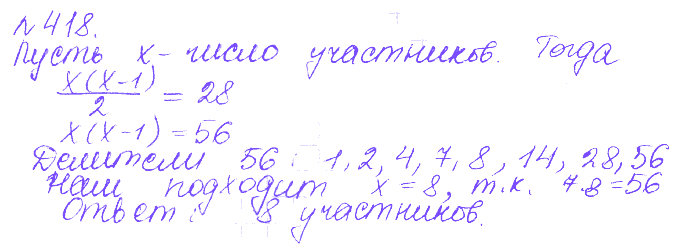 №418.
Пусть x - число участников. Тогда
x(x-1)/2 = 28
x(x-1) = 56
Делители 56: 1, 2, 4, 7, 8, 14, 28, 56
Нам подходит x = 8, т.к. 7·8=56
Ответ: 8 участников.